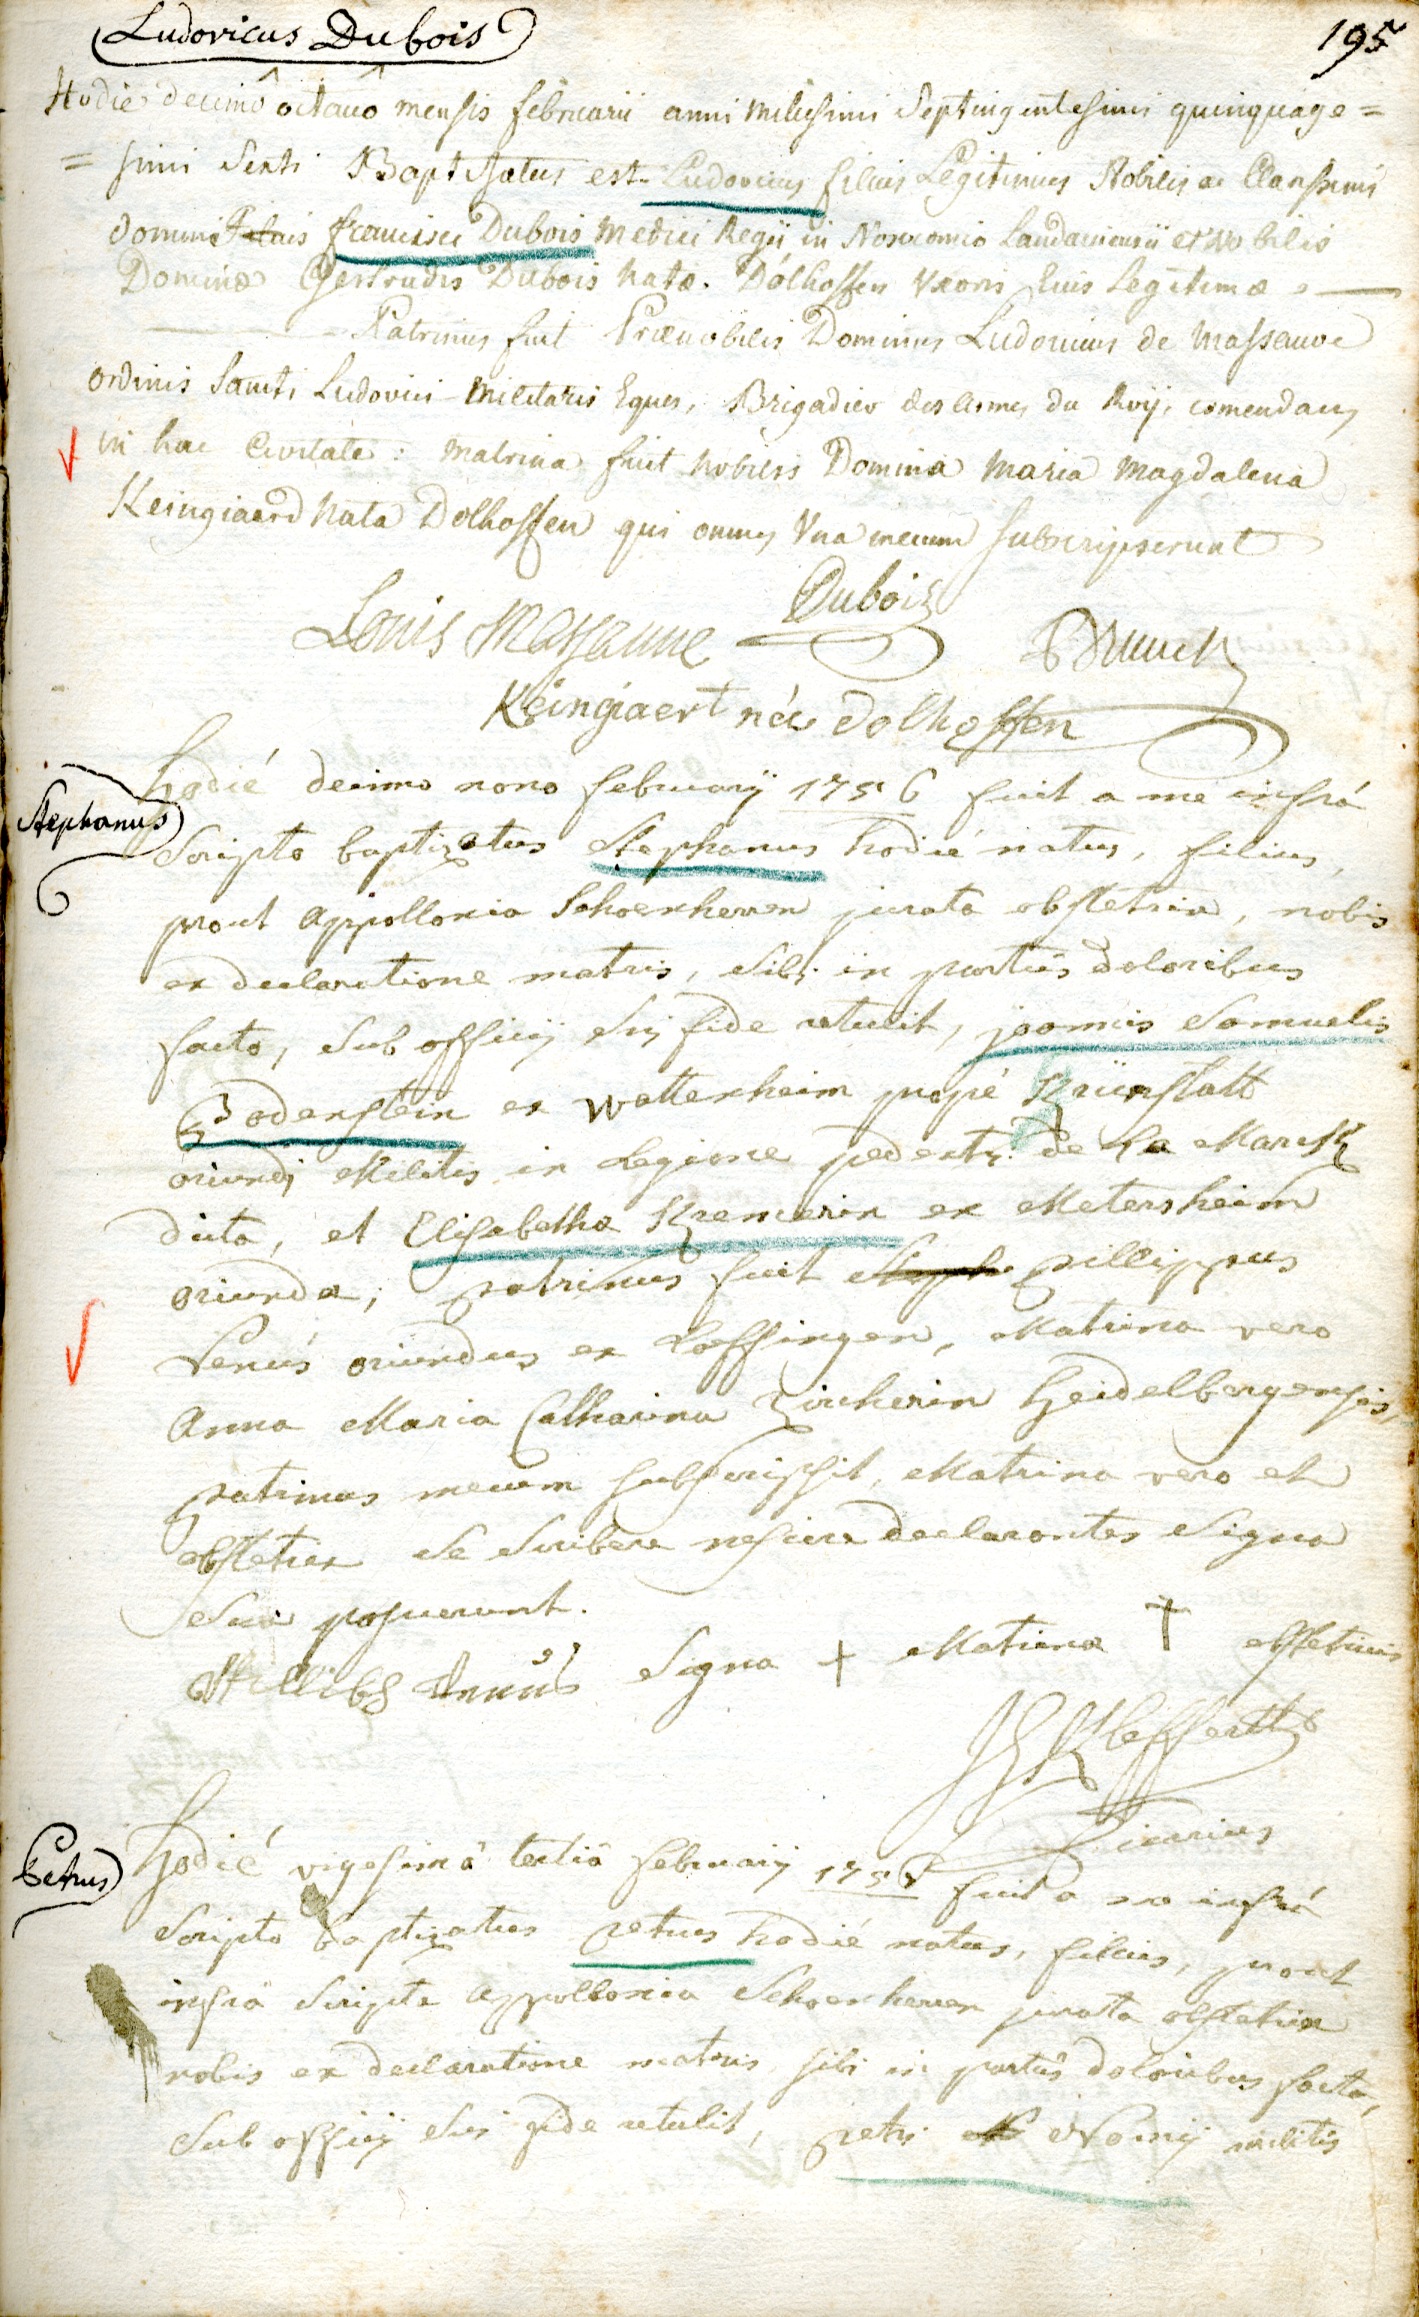 Ludovicus Dubois
195
Hodie decimo octavo mensis februarii anni millesimi Septingentesimi quinquage=
=simi Sexti Baptisatus est Ludovicus filius Legitimus Nobilis ac Clarissimi
domini francisci Dubois Medici Regii in Nosocomio Landaviensii et Nobilis
Dominæ Gertrudis Dubois Natæ Dolhoffen Uxoris Eius Legitimæ
Patrinus fuit Prænobilis Dominus Ludovicus de Massauve
ordinis Sancti Ludovici Militaris Eques, Brigadier des armes du Roij, comendans
in hac Civitate: Matrina fuit Nobilis Domina Maria Magdalena
Keingiaerd Nata Dolhoffen qui omnes Una mecum subscripserunt
Dubois
Louis Massauve
Keingiaert née dolhoffen
Stephanus
hodié decimo nono februarij 1756 fuit a me infrá
Scripto baptizatus Stephanus hodié natus, filius,
prout Appollonia Schoenherren jurata obstetrix, nobis
ex declaratione matris, sibi in partûs doloribus
facta, sub officij sui fide retulit, joannis Samuelis
Bodenstein ex Wattenheim propé Krünstatt
oriundi Militis in Legione pedestri de La Marck
dicta, et Elisabetha Kremerin ex Metersheim
oriunda; patrinus fuit pillippus
Venus oriundus ex Loffingen, Matrina vero
Anna Maria Catharina Zircherin Heidelbergensis,
patrinus mecum subscripsit, Matrina vero et
obstetrix se scribere nescire declarantes Signa
sua posuerunt.
Signa + Matrina † obstetricis
Vicarius
Petrus
hodié vigesimâ tertiâ februarij 1756 fuit a me infrá
Scripto baptizatus petrus hodié natus, filius, prout
infrá Scripta Appollonia Schoenherren jurata obstetrix
nobis ex declaratione matris sibi in partûs doloribus facta,
sub officij sui fide retulit, petri militis